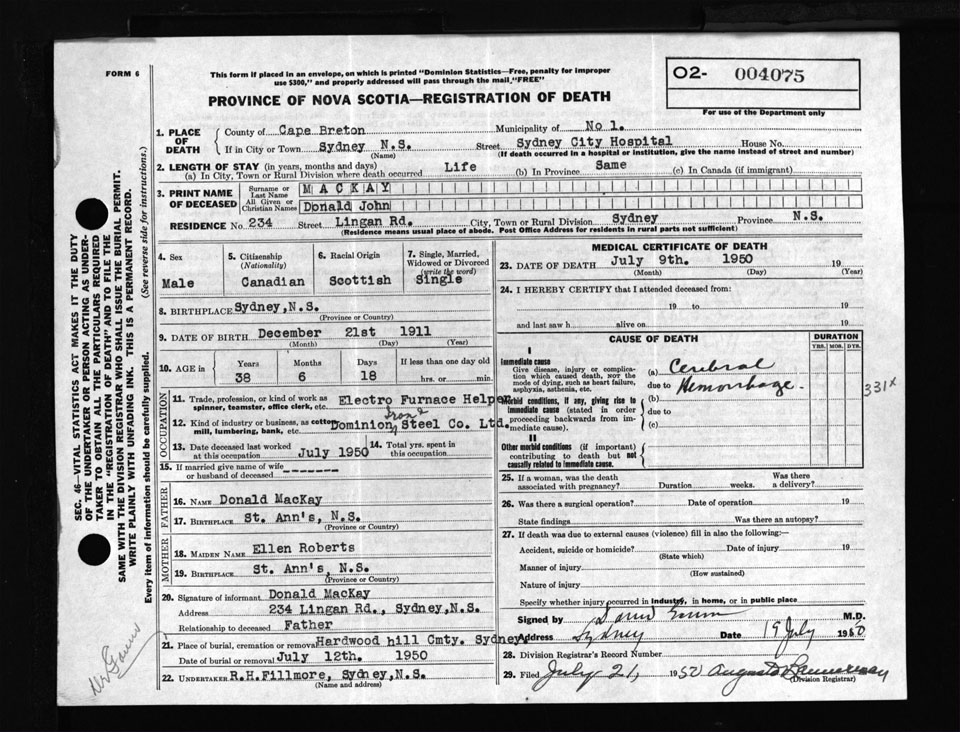 FORM 6
This form if placed in an envelope, on which is printed "Dominion Statistics—Free, penalty for improper
use $300," and properly addressed will pass through the mail, "FREE"
O2- 004075
For use of the Department only
PROVINCE OF NOVA SCOTIA—REGISTRATION OF DEATH
1. PLACE OF DEATH
County of Cape Breton Municipality of No 1.
If in City or Town Sydney N.S. Street Sydney City Hospital House No.
(Name) (If death occurred in a hospital or institution, give the name instead of street and number)
2. LENGTH OF STAY (in years, months and days)
(a) In City, Town or Rural Division where death occurred Life (b) In Province Same (c) In Canada (if immigrant)
3. PRINT NAME OF DECEASED
Surname or Last Name MACKAY
All Given or Christian Names Donald John
RESIDENCE No. 234 Street Lingan Rd. City, Town or Rural Division Sydney Province N.S.
(Residence means usual place of abode. Post Office Address for residents in rural parts not sufficient)
4. Sex 5. Citizenship (Nationality) 6. Racial Origin 7. Single, Married, Widowed or Divorced (write the word)
Male Canadian Scottish Single
8. BIRTHPLACE Sydney, N.S.
(Province or Country)
9. DATE OF BIRTH December 21st 1911
(Month) (Day) (Year)
10. AGE in Years Months Days If less than one day old
38 6 18 hrs. or min.
OCCUPATION
11. Trade, profession, or kind of work as spinner, teamster, office clerk, etc. Electro Furnace Helper
12. Kind of industry or business, as cotton mill, lumbering, bank, etc. Dominion Iron & Steel Co. Ltd.
13. Date deceased last worked at this occupation July 1950 14. Total yrs. spent in this occupation
15. If married give name of wife or husband of deceased -------
FATHER
16. NAME Donald MacKay
17. BIRTHPLACE St. Ann's, N.S.
(Province or Country)
MOTHER
18. MAIDEN NAME Ellen Roberts
19. BIRTHPLACE St. Ann's, N.S.
(Province or Country)
20. Signature of informant Donald MacKay
Address 234 Lingan Rd., Sydney, N.S.
Relationship to deceased Father
21. Place of burial, cremation or removal Hardwood hill Cmty. Sydney
Date of burial or removal July 12th. 1950
22. UNDERTAKER R.H.Fillmore, Sydney, N.S.
(Name and address)
MEDICAL CERTIFICATE OF DEATH
23. DATE OF DEATH July 9th. 1950 19
(Month) (Day) (Year)
24. I HEREBY CERTIFY that I attended deceased from:
19 to 19
and last saw h alive on 19
CAUSE OF DEATH
DURATION
YRS. MOS. DYS.
I
Immediate cause
Give disease, injury or complication which caused death, NOT the mode of dying, such as heart failure, asphyxia, asthenia, etc.
(a) Cerebral
due to Hemorrhage.
331x
Morbid conditions, if any, giving rise to immediate cause (stated in order proceeding backwards from immediate cause).
(b)
due to
(c)
II
Other morbid conditions (if important) contributing to death but not causally related to immediate cause.
25. If a woman, was the death associated with pregnancy? Duration weeks. Was there a delivery?
26. Was there a surgical operation? Date of operation 19
State findings Was there an autopsy?
27. If death was due to external causes (violence) fill in also the following:—
Accident, suicide or homicide? Date of injury 19
(State which)
Manner of injury
(How sustained)
Nature of injury
Specify whether injury occurred in industry, in home, or in public place
Signed by M.D.
Address Sydney Date 19 July 1950
28. Division Registrar's Record Number
29. Filed July 21, 1950
(Division Registrar)
SEC. 46— VITAL STATISTICS ACT MAKES IT THE DUTY
OF THE UNDERTAKER OR PERSON ACTING AS UNDER-
TAKER TO OBTAIN ALL THE PARTICULARS REQUIRED
IN THE "REGISTRATION OF DEATH" AND TO FILE THE
SAME WITH THE DIVISION REGISTRAR WHO SHALL ISSUE THE BURIAL PERMIT.
WRITE PLAINLY WITH UNFADING INK. THIS IS A PERMANENT RECORD.
Every item of information should be carefully supplied. (See reverse side for instructions.)